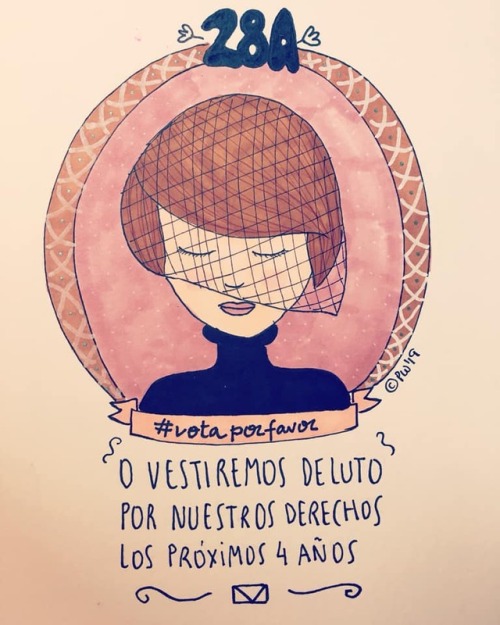 28A
©PW'19
#votaporfavor
O VESTIREMOS DE LUTO
POR NUESTROS DERECHOS
LOS PRÓXIMOS 4 AÑOS